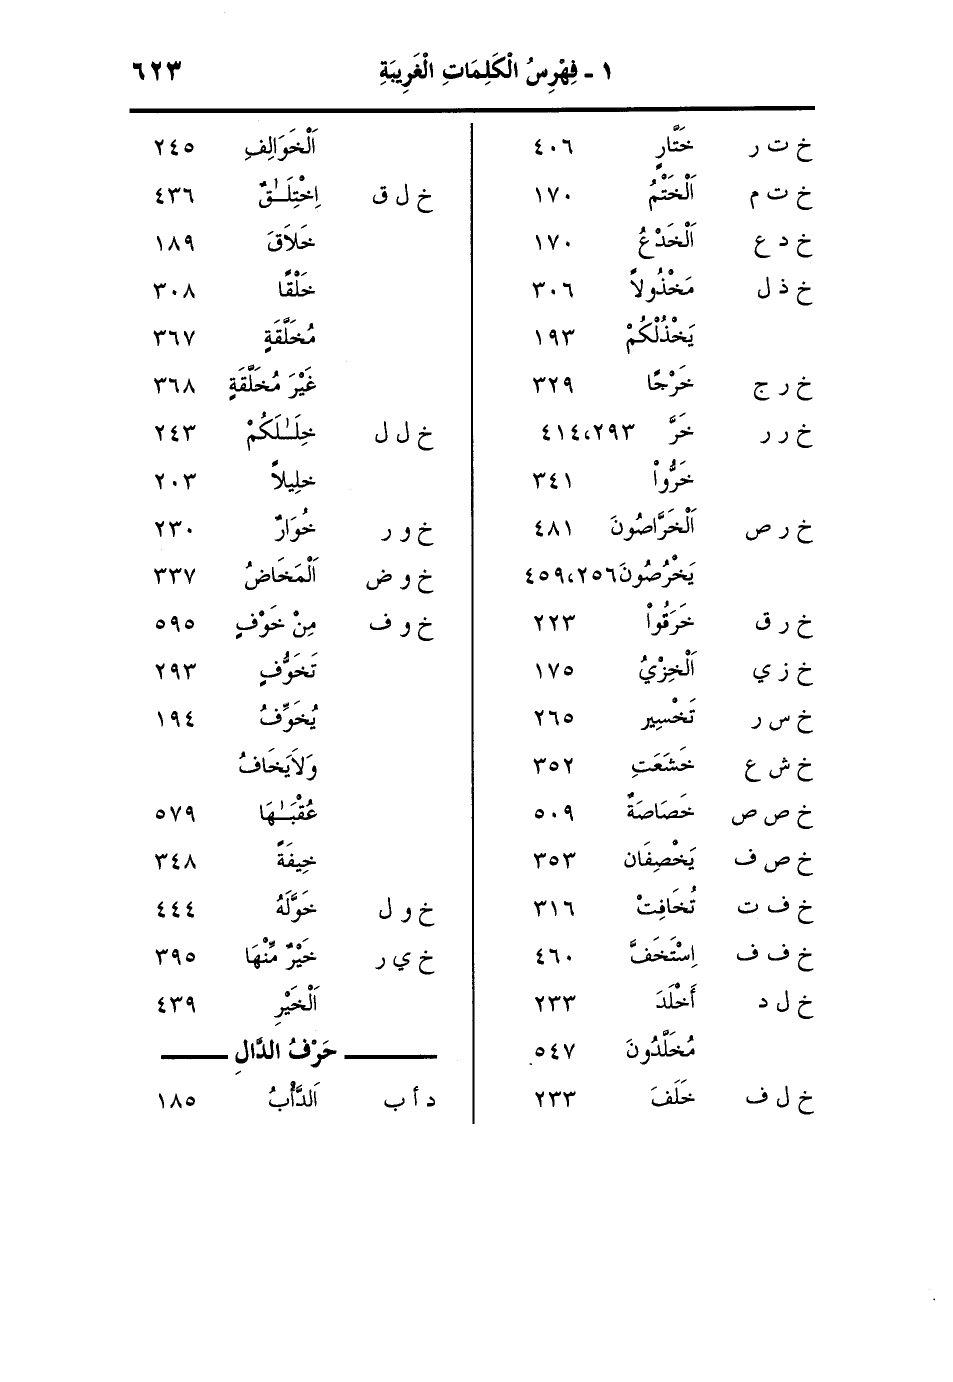 ١ - فِهْرِسُ الْكَلِمَاتِ الْغَرِيبَةِ ٦٢٣
خ ت ر خَتَّارٍ ٤٠٦
خ ت م اَلْخَتْمُ ١٧٠
خ د ع اَلْخَدْعُ ١٧٠
خ ذ ل مَخْذُولاً ٣٠٦
يَخْذُلْكُمْ ١٩٣
خ ر ج خَرْجًا ٣٢٩
خ ر ر خَرَّ ٤١٤،٢٩٣
خَرُّواْ ٣٤١
خ ر ص اَلْخَرَّاصُونَ ٤٨١
يَخْرُصُونَ ٤٥٩،٢٥٦
خ ر ق خَرَقُواْ ٢٢٣
خ ز ي اَلْخِزْيُ ١٧٥
خ س ر تَخْسِيرٍ ٢٦٥
خ ش ع خَشَعَتِ ٣٥٢
خ ص ص خَصَاصَةٌ ٥٠٩
خ ص ف يَخْصِفَان ٣٥٣
خ ف ت تُخَافِتْ ٣١٦
خ ف ف اِسْتَخَفَّ ٤٦٠
خ ل د أَخْلَدَ ٢٣٣
مُخَلَّدُونَ ٥٤٧
خ ل ف خَلَفَ ٢٣٣
اَلْخَوَالِفِ ٢٤٥
خ ل ق اِخْتِلَـٰقٌ ٤٣٦
خَلاَقَ ١٨٩
خَلْقًا ٣٠٨
مُخَلَّقَةٍ ٣٦٧
غَيْرَ مُخَلَّقَةٍ ٣٦٨
خ ل ل خِلَـٰلَكُمْ ٢٤٣
خلِيلاً ٢٠٣
خ و ر خُوَارٌ ٢٣٠
خ و ض اَلْمَخَاضُ ٣٣٧
خ و ف مِنْ خَوْفٍ ٥٩٥
تَخَوُّفٍ ٢٩٣
يُخَوِّفُ ١٩٤
وَلاَيَخَافُ
عُقْبَـٰهَا ٥٧٩
خِيفَةً ٣٤٨
خ و ل خَوَّلَهُ ٤٤٤
خ ي ر خَيْرٌ مِّنْهَا ٣٩٥
اَلْخَيْرِ ٤٣٩
حَرْفُ الدَّالِ
د أ ب اَلدَّأْبُ ١٨٥